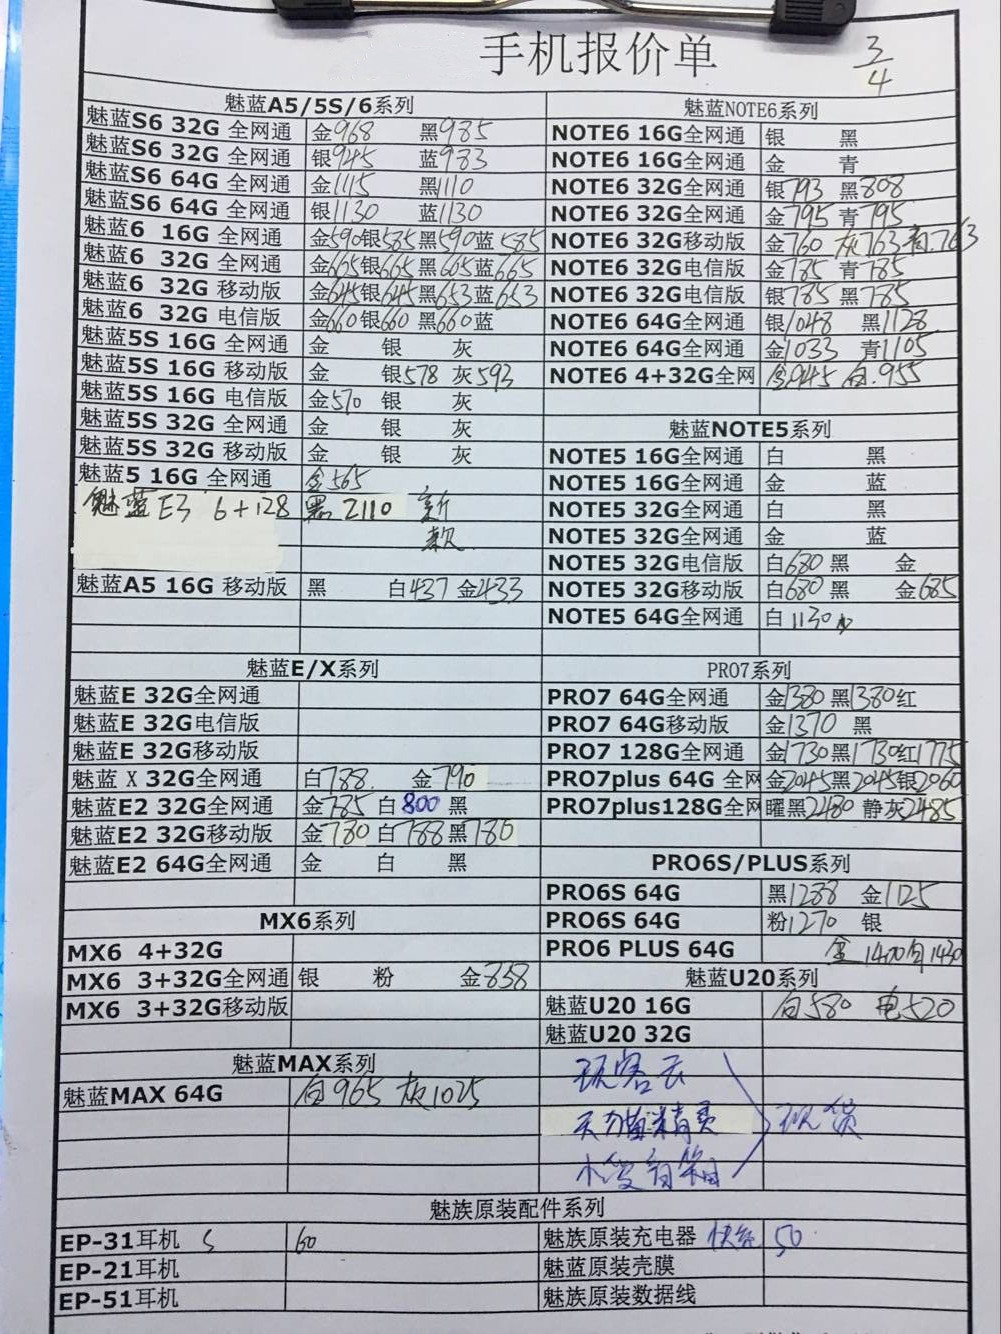 手机报价单
3/4
魅蓝A5/5S/6系列
魅蓝S6 32G 全网通 金968 黑985
魅蓝S6 32G 全网通 银945 蓝983
魅蓝S6 64G 全网通 金1115 黑1110
魅蓝S6 64G 全网通 银1130 蓝1130
魅蓝6 16G 全网通 金590银585黑590蓝585
魅蓝6 32G 全网通 金665银665黑665蓝665
魅蓝6 32G 移动版 金645银645黑653蓝653
魅蓝6 32G 电信版 金660银660黑660蓝
魅蓝5S 16G 全网通 金 银 灰
魅蓝5S 16G 移动版 金 银578 灰593
魅蓝5S 16G 电信版 金570 银 灰
魅蓝5S 32G 全网通 金 银 灰
魅蓝5S 32G 移动版 金 银 灰
魅蓝5 16G 全网通 金565
魅蓝E3 6+128 黑2110 新
款
魅蓝A5 16G 移动版 黑 白437 金433
魅蓝E/X系列
魅蓝E 32G全网通
魅蓝E 32G电信版
魅蓝E 32G移动版
魅蓝X 32G全网通 白788 金790
魅蓝E2 32G全网通 金785 白800 黑
魅蓝E2 32G移动版 金780 白788黑780
魅蓝E2 64G全网通 金 白 黑
MX6系列
MX6 4+32G
MX6 3+32G全网通 银 粉 金858
MX6 3+32G移动版
魅蓝MAX系列
魅蓝MAX 64G 白965 灰1025
魅蓝NOTE6系列
NOTE6 16G全网通 银 黑
NOTE6 16G全网通 金 青
NOTE6 32G全网通 银793 黑808
NOTE6 32G全网通 金795 青795
NOTE6 32G移动版 金760 灰763 青763
NOTE6 32G电信版 金785 青785
NOTE6 32G电信版 银785 黑785
NOTE6 64G全网通 银1048 黑1128
NOTE6 64G全网通 金1033 青1105
NOTE6 4+32G全网 金945 白.955
魅蓝NOTE5系列
NOTE5 16G全网通 白 黑
NOTE5 16G全网通 金 蓝
NOTE5 32G全网通 白 黑
NOTE5 32G全网通 金 蓝
NOTE5 32G电信版 白680 黑 金
NOTE5 32G移动版 白680 黑 金685
NOTE5 64G全网通 白1130
PRO7系列
PRO7 64G全网通 金1380 黑1380红
PRO7 64G移动版 金1370 黑
PRO7 128G全网通 金1730黑1730红1775
PRO7plus 64G 全网 金2045黑2045银2060
PRO7plus128G全网 曜黑2480 静灰2485
PRO6S/PLUS系列
PRO6S 64G 黑1288 金1125
PRO6S 64G 粉1270 银
PRO6 PLUS 64G 金1400白1430
魅蓝U20系列
魅蓝U20 16G 白580 电520
魅蓝U20 32G
玩客云
天猫精灵 现货
小爱音箱
魅族原装配件系列
EP-31耳机 60
EP-21耳机
EP-51耳机
魅族原装充电器 50
魅蓝原装壳膜
魅族原装数据线